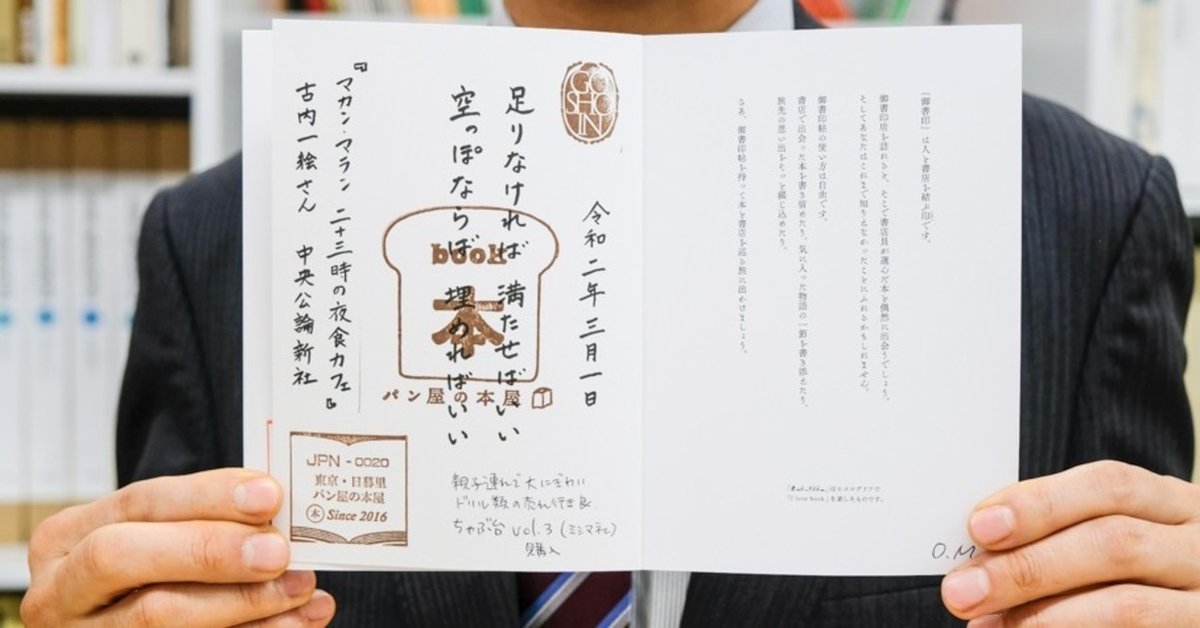 「御書印」は人と書店を結ぶ印です。
御書印店を訪れると、そこで書店員が選んだ本と偶然に出会うでしょう。
そしてあなたはこれまで知りえなかったことにふれるかもしれません。
御書印帖の使い方は自由です。
書店で出会った本を書き留めたり、気に入った物語の一節を書き添えたり、
旅先の思い出をそっと綴じ込めたり。
さあ、御書印帖を持って本と書店を巡る旅に出かけましょう。
「I love book」を表したものです。
O.M
GO
SHO
IN
令和二年三月一日
足りなければ 満たせばいい
空っぽならば 埋めればいい
『マカン・マラン 二十三時の夜食カフェ』
古内一絵さん 中央公論新社
book
本
パン屋の本屋
JPN - 0020
東京・日暮里
パン屋の本屋
本 Since 2016
親子連れで大にぎわい
ドリル数の売れ行き良
ちゃぶ台 vol.3 (ミシマ社)
購入